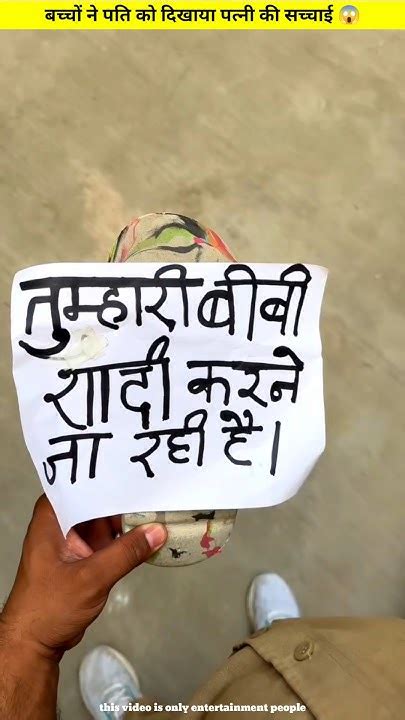 बच्चों ने पति को दिखाया पत्नी की सच्चाई 😱
तुम्हारी बीबी
शादी करने
जा रही है।
this video is only entertainment people